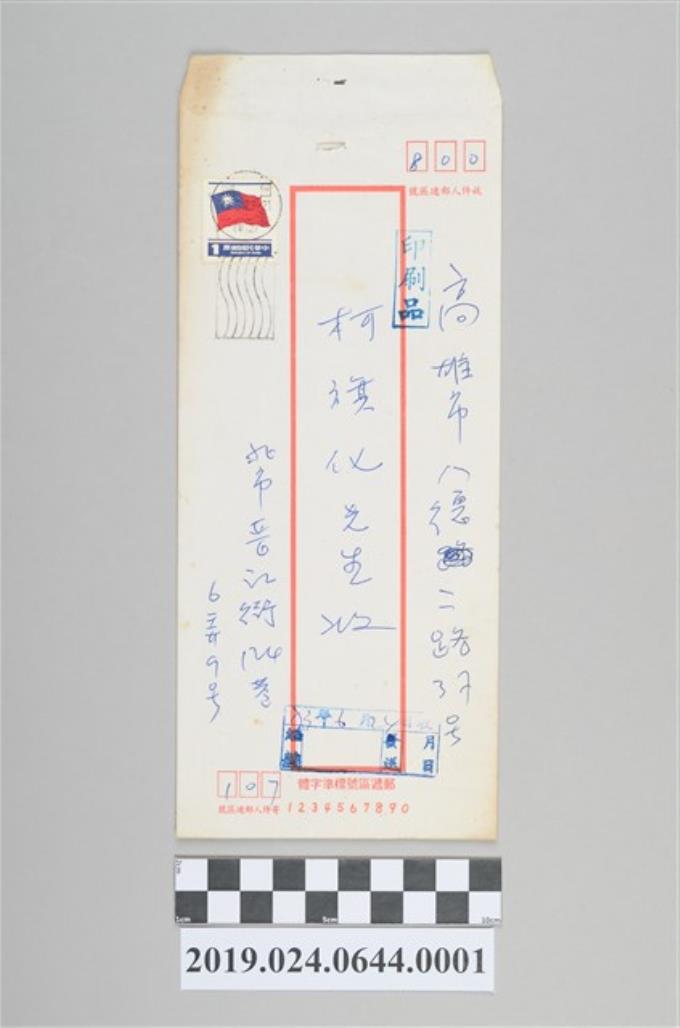 800
收件人郵遞區號
印刷品
高雄市八德二路37号
柯旗化先生收
1 中華民國郵票
北市晋江街124巷
6弄9号
月
日
107
寄件人郵遞區號
郵遞區號標準字體
1234567890
2cm
1cm 5cm 10cm
2019.024.0644.0001